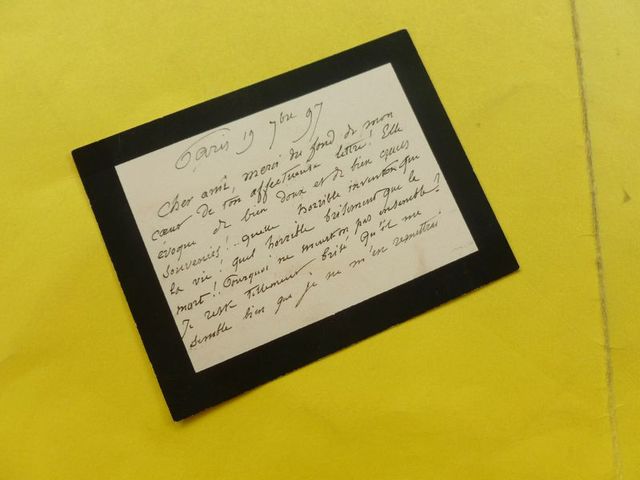 Paris 19 7bre 97
Cher ami, merci du fond de mon
cœur de ton affectueuse lettre! Elle
évoque de bien doux et de bien cruels
souvenirs! .. Quelle horrible invention que
la vie! Quel horrible brisement que la
mort!! Pourquoi ne meurt-on pas ensemble?
Je reste tellement brisé qu'il me
semble bien que je ne m'en remettrai